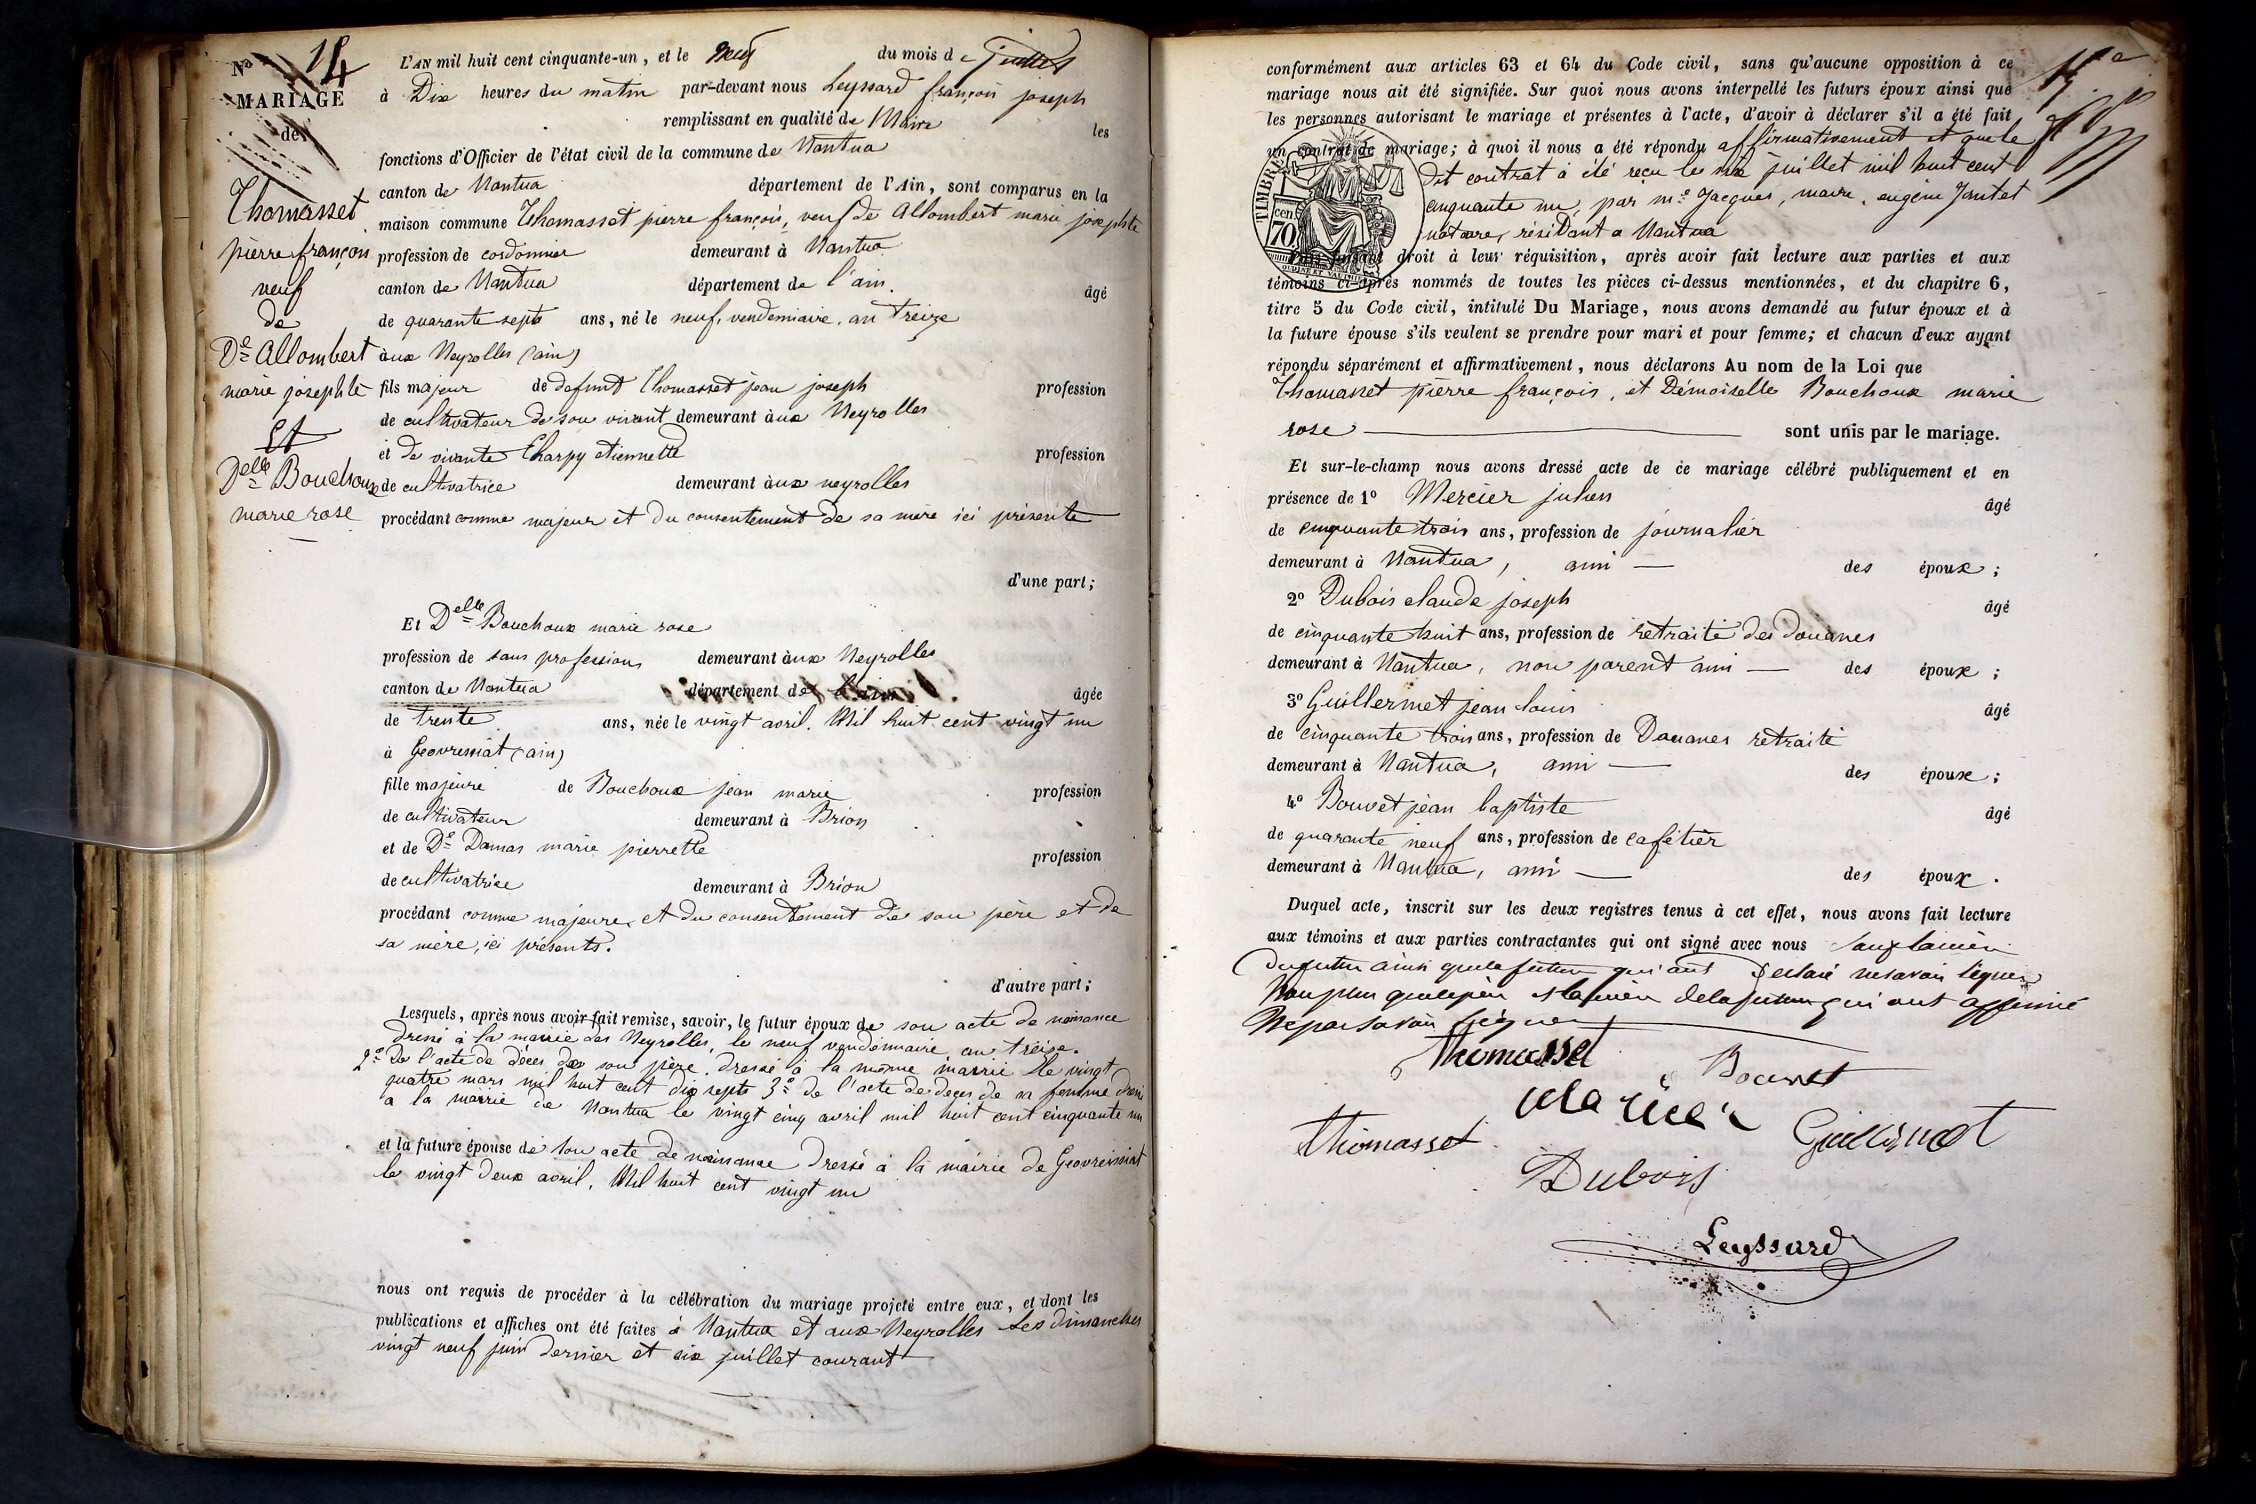 No 14
MARIAGE
de
Thomasset
pierre françois
veuf
de
De Allombert
marie josephte
Et
Delle Bouchoux
marie rose
L'AN mil huit cent cinquante-un, et le neuf du mois de juillet
à Dix heures du matin par-devant nous Leyssard françois joseph
remplissant en qualité de Maire les
fonctions d'Officier de l'état civil de la commune de Nantua
canton de Nantua département de l'Ain, sont comparus en la
maison commune Thomasset pierre françois, veuf de Allombert marie josephte
profession de cordonnier demeurant à Nantua
canton de Nantua département de l'ain. âgé
de quarante sept ans, né le neuf, vendemiaire, an treize
aux Neyrolles (ain)
fils majeur de defunt Thomasset jean joseph profession
de cultivateur de son vivant demeurant aux Neyrolles
et de vivante Charpy etiennette profession
de cultivatrice demeurant aux neyrolles
procédant comme majeur et du consentement de sa mère ici présente
d'une part;
Et Delle Bouchoux marie rose
profession de sans profession demeurant aux Neyrolles
canton de Nantua département de l'ain âgée
de trente ans, née le vingt avril. Mil huit cent vingt un
à Geovreissiat (ain)
fille majeure de Bouchoux jean marie profession
de cultivateur demeurant à Brion
et de De Damas marie pierrette profession
de cultivatrice demeurant à Brion
procédant comme majeure, et du consentement de son père et de
sa mère, ici présents.
d'autre part;
Lesquels, après nous avoir fait remise, savoir, le futur époux de son acte de naissance
dressé à la mairie des Neyrolles, le neuf vendémiaire an treize.
2o De l'acte de décès de son père. dressé à la même mairie le vingt
quatre mars mil huit cent dix sept 3o de l'acte de deces de sa femme dressé
à la mairie de Nantua le vingt cinq avril mil huit cent cinquante un
et la future épouse de son acte de naissance dressé à la mairie de Geovreissiat
le vingt deux avril. Mil huit cent vingt un
nous ont requis de procéder à la célébration du mariage projeté entre eux, et dont les
publications et affiches ont été faites à Nantua et aux Neyrolles Les dimanches
vingt neuf juin dernier et six juillet courant
conformément aux articles 63 et 64 du Code civil, sans qu'aucune opposition à ce
mariage nous ait été signifiée. Sur quoi nous avons interpellé les futurs époux ainsi que
les personnes autorisant le mariage et présentes à l'acte, d'avoir à déclarer s'il a été fait
un contrat de mariage; à quoi il nous a été répondu affirmativement et que le
dit contrat a été reçu le six juillet mil huit cent
cinquante un, par me Jacques, marie, eugène Jantet
notaire, résidant a Nantua
TIMBRE
cen
70
faisant droit à leur réquisition, après avoir fait lecture aux parties et aux
témoins ci-après nommés de toutes les pièces ci-dessus mentionnées, et du chapitre 6,
titre 5 du Code civil, intitulé Du Mariage, nous avons demandé au futur époux et à
la future épouse s'ils veulent se prendre pour mari et pour femme; et chacun d'eux ayant
répondu séparément et affirmativement, nous déclarons Au nom de la Loi que
Thomasset pierre françois, et Démoiselle Bouchoux marie
rose sont unis par le mariage.
Et sur-le-champ nous avons dressé acte de ce mariage célébré publiquement et en
présence de 1o Mercier julien âgé
de cinquante trois ans, profession de journalier
demeurant à Nantua, ami des époux;
2o Dubois claude joseph âgé
de cinquante huit ans, profession de retraité des douanes
demeurant à Nantua, non parent ami des époux;
3o Guillermet jean louis âgé
de cinquante trois ans, profession de Douanes retraité
demeurant à Nantua, ami des époux;
4o Bouvet jean baptiste âgé
de quarante neuf ans, profession de cafétier
demeurant à Nantua, ami des époux.
Duquel acte, inscrit sur les deux registres tenus à cet effet, nous avons fait lecture
aux témoins et aux parties contractantes qui ont signé avec nous sauf la mère
du futur ainsi que la future qui ont déclaré ne savoir signer
Non plus que le père et la mère de la future qui ont affirmé
Ne pas savoir signer
Thomasset
Bouvet
Thomasset
Dubois
Leyssard